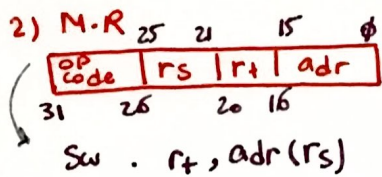 2) M.R
25 21 15 0
op code rs rt adr
31 26 20 16
sw . rt, adr(rs)